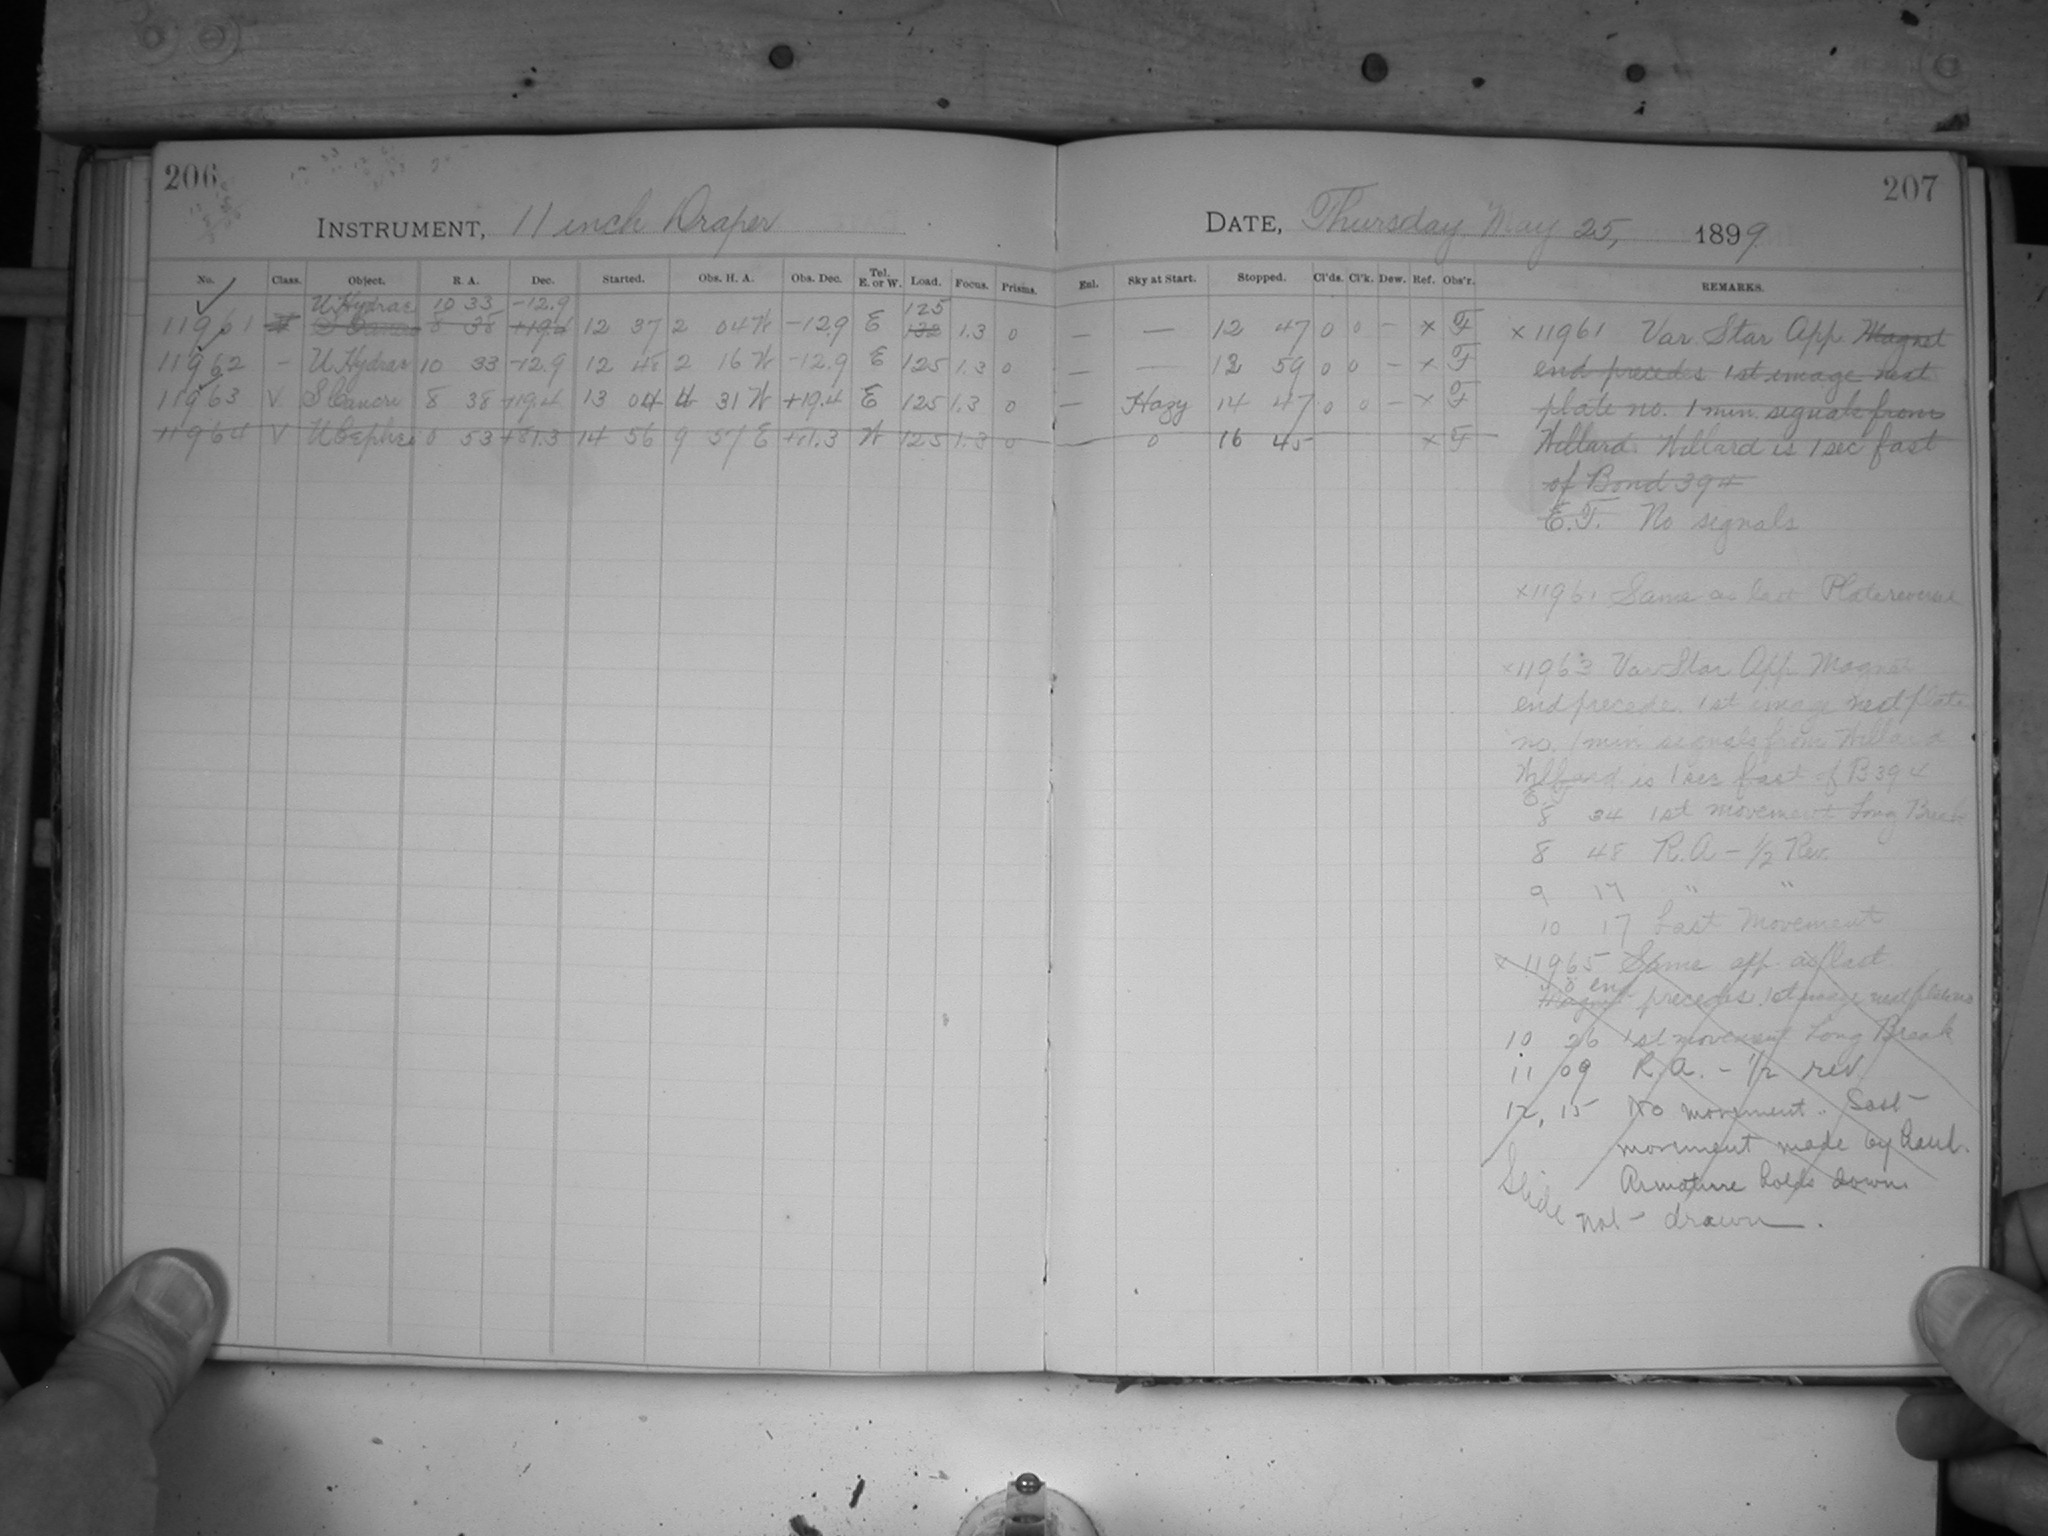 206
INSTRUMENT, 11 inch Draper
No. Class. Object. R. A. Dec. Started. Obs. H. A. Obs. Dec. Tel. E. or W. Load. Focus. Prisms.
U Hydrae 10 33 -12.9 125
11961 S Cancri 8 38 +19.4 12 37 2 04 W -12.9 E 132 1.3 0
11962 - U Hydrae 10 33 -12.9 12 48 2 16 W -12.9 E 125 1.3 0
11963 V S Cancri 8 38 +19.4 13 04 4 31 W +19.4 E 125 1.3 0
11964 V U Cephei 0 53 +81.3 14 56 9 57 E +81.3 W 125 1.3 0
207
DATE, Thursday May 25, 1899
Enl. Sky at Start. Stopped. Cl'ds. Cl'k. Dew. Ref. Obs'r. REMARKS.
— — 12 47 0 0 - x F
— — 12 59 0 0 - x F
— Hazy 14 47 0 0 - x F
0 16 45 x F
x 11961 Var. Star App. Magnet
end precedes 1st image next
plate no. 1 min. signals from
Willard. Willard is 1 sec fast
of Bond 394
E.F. No signals
x 11961 Same as last Plate reversed
x 11963 Var Star App. Magnet
end precede. 1st image next plate
no. 1 min signals from Willard
Willard is 1 sec fast of B 394
8 34 1st movement Long Break
8 48 R.A - 1/2 Rev.
9 17 " "
10 17 Last Movement
x 11965 Same app. as last
end
Magnet precedes. 1st image next plate no
10 26 1st movement Long Break
11 09 R.A. - 1/2 rev
12, 15 No movement. Last
movement made by hand.
Armature holds down
Slide not drawn.